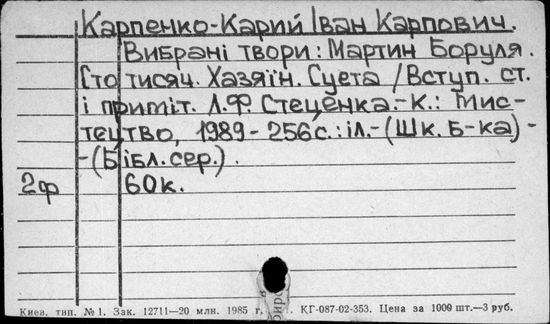 Карпенко-Карий Іван Карпович.
Вибрані твори: Мартин Боруля.
Сто тисяч. Хазяїн. Суета /Вступ. ст.
і приміт. Л.Ф Стеценка.-К.: Мис-
тецтво, 1989-256с.:іл.-(Шк. Б-ка)-
-(Бібл. сер.).
2ф 60к.
Киев. тип. № 1. Зак. 12711—20 млн. 1985 г. КГ-087-02-353. Цена за 1000 шт.—3 руб.